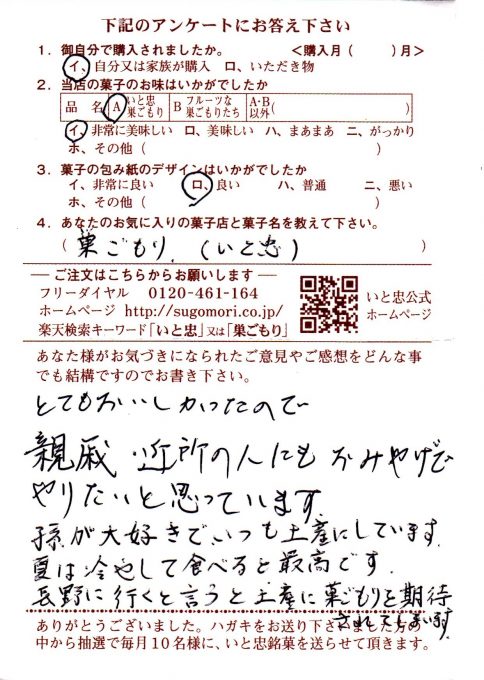 下記のアンケートにお答え下さい
1．御自分で購入されましたか。　＜購入月（　　　）月＞
イ、自分又は家族が購入　ロ、いただき物
2．当店の菓子のお味はいかがでしたか
品　名　A いと忠巣ごもり　B フルーツな巣ごもりたち　A・B以外（　　　　　　）
イ、非常に美味しい　ロ、美味しい　ハ、まあまあ　ニ、がっかり
ホ、その他（　　　　　　　　　　　　　　　）
3．菓子の包み紙のデザインはいかがでしたか
イ、非常に良い　ロ、良い　ハ、普通　ニ、悪い
ホ、その他（　　　　　　　　　　　　　　　）
4．あなたのお気に入りの菓子店と菓子名を教えて下さい。
（巣ごもり．（いと忠）　　　　　　）
― ご注文はこちらからお願いします ―
フリーダイヤル　0120-461-164
ホームページ　http://sugomori.co.jp/
楽天検索キーワード「いと忠」又は「巣ごもり」
いと忠公式
ホームページ
あなた様がお気づきになられたご意見やご感想をどんな事
でも結構ですのでお書き下さい。
とてもおいしかったので
親戚．近所の人にもおみやげで
やりたいと思っています
孫が大好きでいつも土産にしています．
夏は冷やして食べると最高です．
長野に行くと言うと土産に巣ごもりを期待
されてしまいます
ありがとうございました。ハガキをお送り下さいました方の
中から抽選で毎月10名様に、いと忠銘菓を送らせて頂きます。